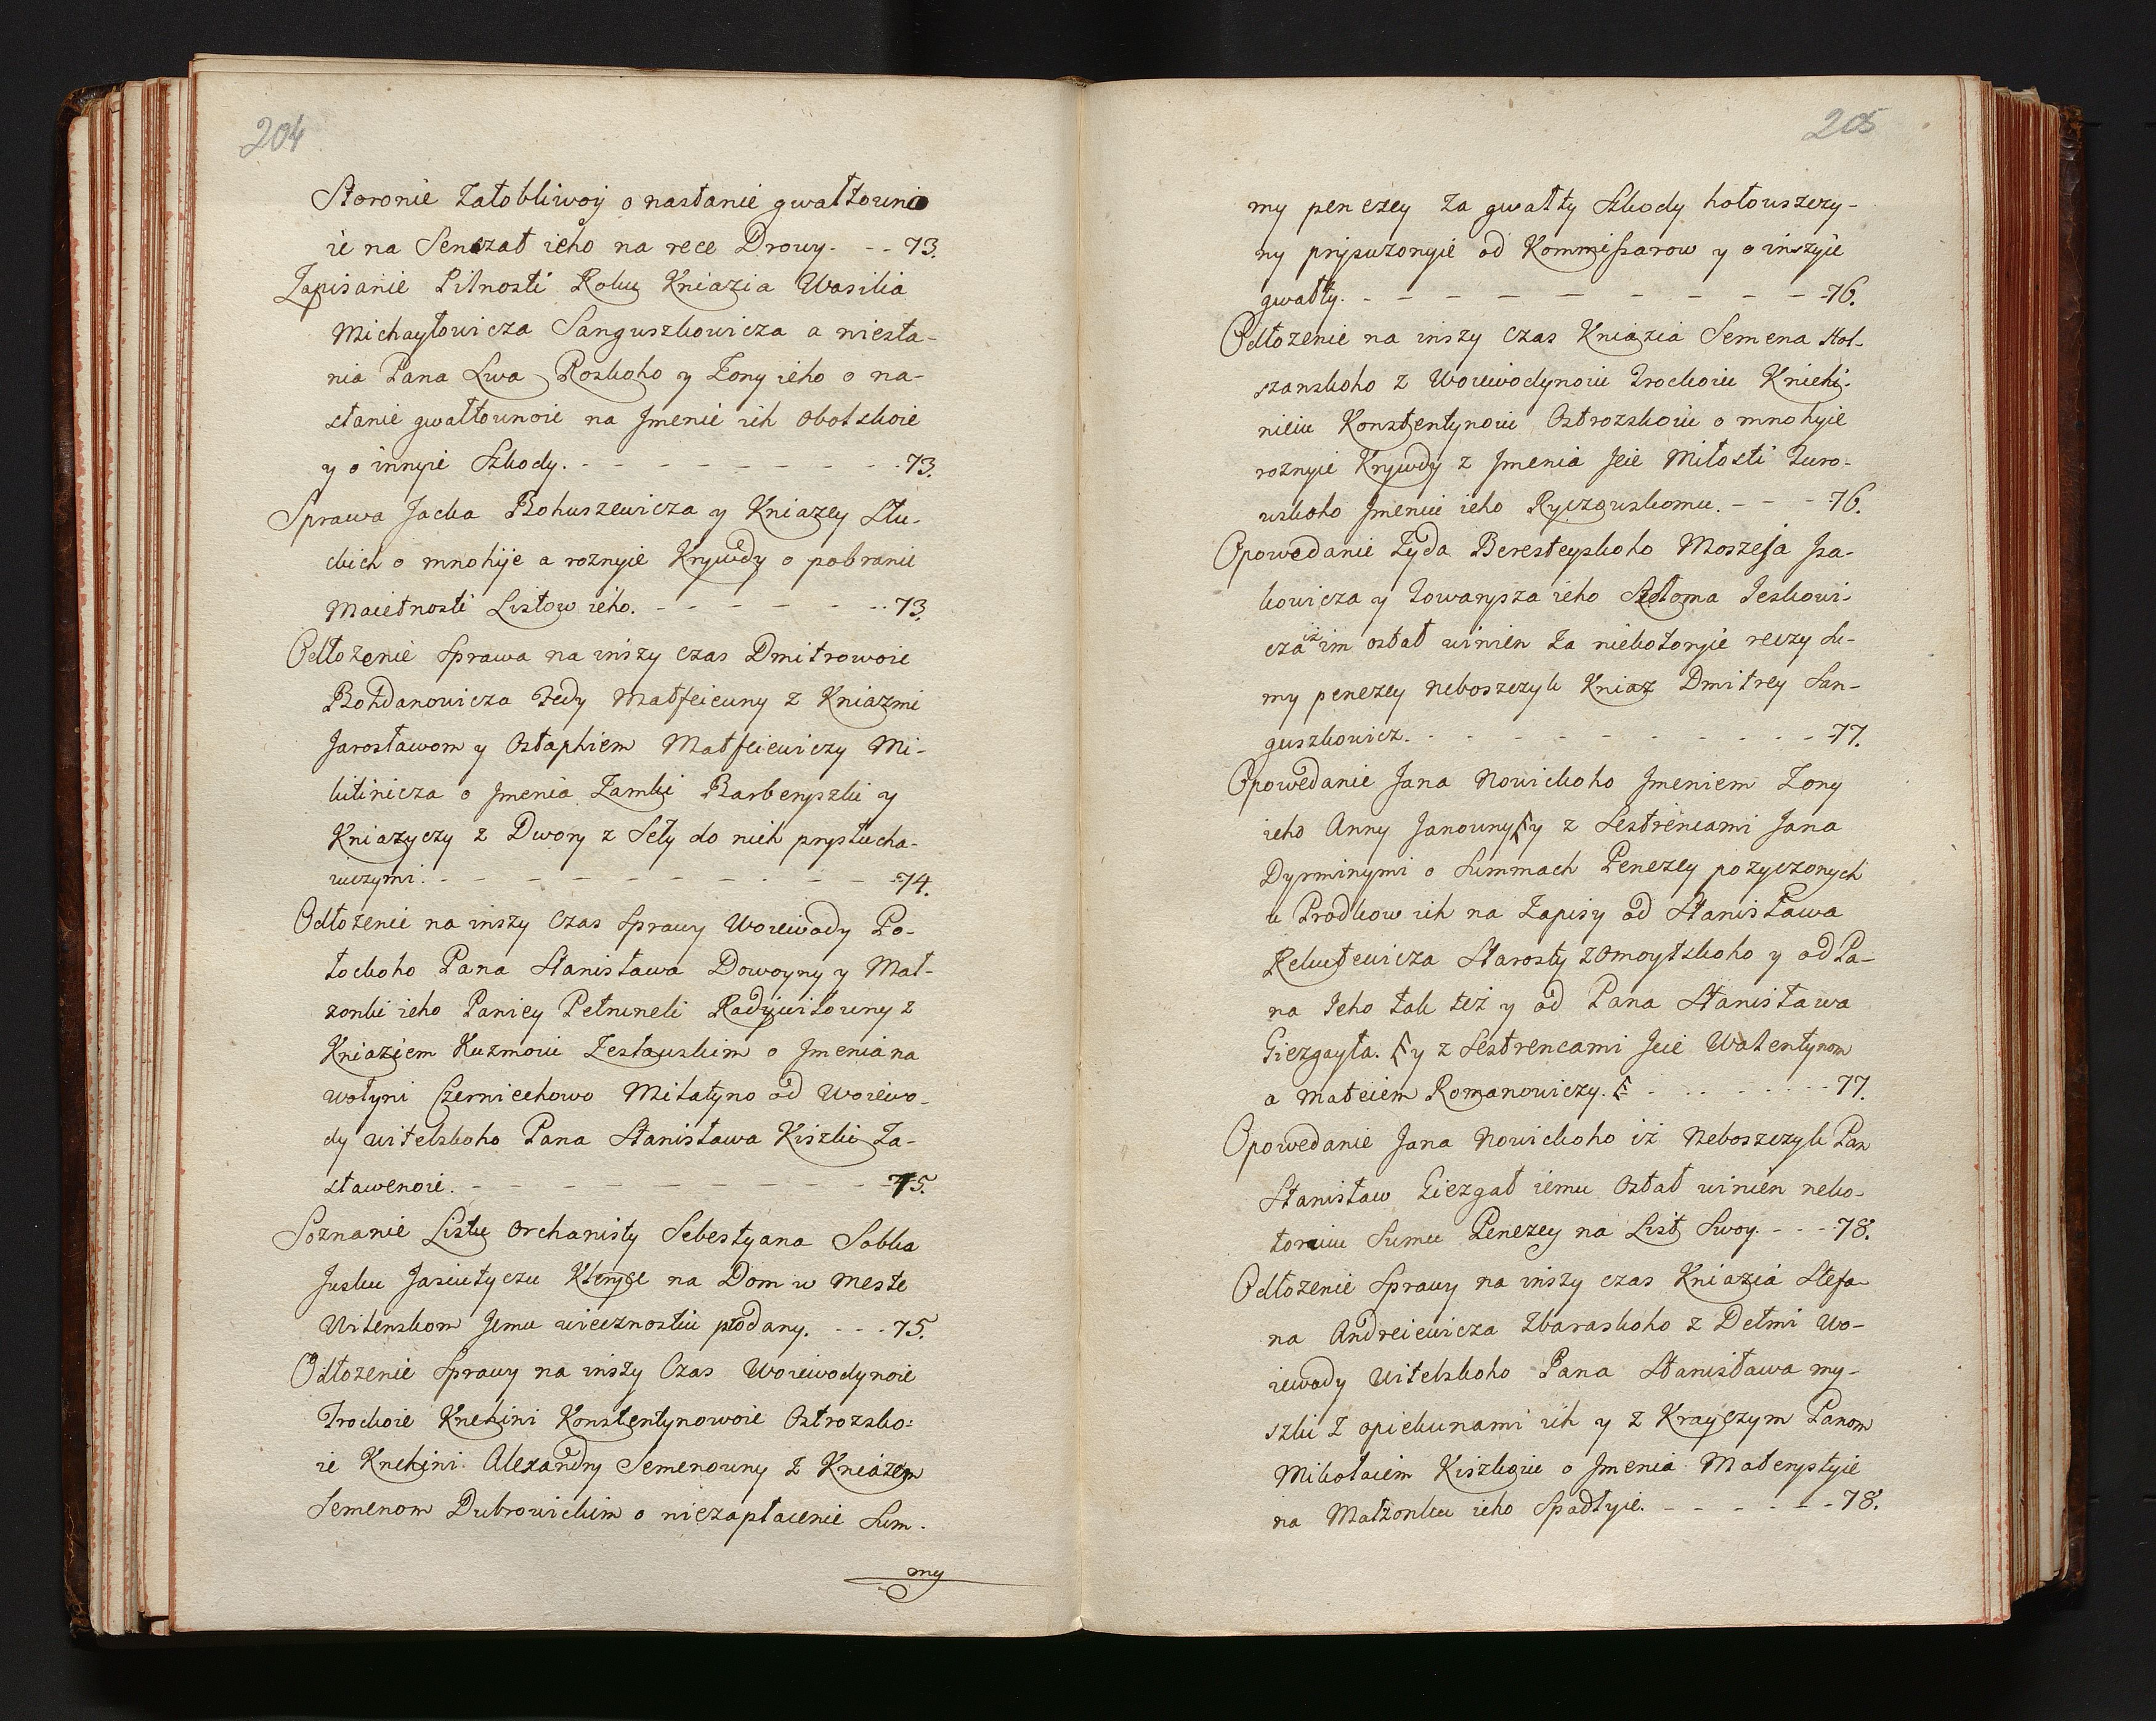 204
Storonie Załobliwoy o nasłanie gwałtowno
ie na Senozat ieho na rece Drowy. - - 73.
Zapisanie Pilnosti Roku Kniazia Wasilia
Michayłowicza Sanguszkowicza a niesta-
nia Pana Lwa Rozkoho y Zony ieho o na-
słanie gwałtownoie na Jmenie ich Obolskoie
y o innyie Szkody. - - - - - - - - 73.
Sprawa Jacka Bohuszewicza y Kniazey Słu-
ckich o mnohije a roznyie Krywdy o pobranie
Maietnosti Listow ieho. - - - - - - 73.
Odłozenie Sprawa na inszy czas Dmitrowoie
Bohdanowicza Fedy Matfeiewny z Kniazmi
Jarosławom y Ostaphiem Matfeiewiczy Mi-
kitinicza o Jmenia Zamki Barberyszki y
Kniazyczy z Dwory z Seły do nich prysłucha-
iuczymi. - - - - - - - - - - 74.
Odłozenie na inszy Czas Sprawy Woiewody Po-
łockoho Pana Stanisława Dowoyny y Mał-
zonki ieho Paniey Petruneli Radziwiłowny z
Kniaziem Kuzmoiu Zesławskim o Jmenia na
wołyni Czerniechowo Miłatyno od Woiewo-
dy witebskoho Pana Stanisława Kiszki Za-
stawenoie. - - - - - - - - - - 75.
Soznanie Listu Orchanisty Sebestyana Sobka
Jusku Jasiutyczu Kteryie na Dom w Meste
Witenskom Jemu wiecznostiu prodany. - - - 75.
Odłozenie Sprawy na inszy Czas Woiewodynoie
Trockoie Knehini Konstentynowoie Ostrozsko-
ie Knehini. Alexandry Semenowny z Kniazem
Semenom Dubrowickim o niezapłacenie Sum-
my
205
my penezey za gwałty Szkody hołowszczy-
ny prysuzonyie od Kommissarow y o inszyie
gwałty. - - - - - - - - - - - 76.
Odłozenie na inszy czas Kniazia Semena Hol-
szanskoho z Woiewodynoiu Trockoiu Kniehi-
nieiu Konstentynoiu Ostrozskoiu o mnohyie
roznyie Krywdy z Jmenia Jeie Miłosti Turo-
wskoho Jmeniu ieho Ryczowskomu. - - - 76.
Opowedanie Zyda Beresteyskoho Moszeja Isa-
kowicza y Towarysza ieho Szłoma Jeskowi-
cza iz im ostał winien za niekotoryie reczy Su-
my penezey neboszczyk Kniaz Dmitrey San-
guszkowicz. - - - - - - - - - - 77.
Opowedanie Jana Nowickoho Jmeniem Zony
ieho Anny Janowny y z Sestrencami Jana
Dyrminymi o Summach Penezey pozyczonych
u Prodkow ich na Zapisy od Stanisława
Rekutewicza Starosty zomoytskoho y od Pa-
na Jeho tak też y od Pana Stanisława
Giezgayła. y z Sestrencami Jeie Walentynom
a Mateiem Romanowiczy. - - - - - - 77.
Opowedanie Jana Nowickoho iż Neboszczyk Pan
Stanisław Giezgał iemu Ostał winien neko-
toruiu Sumu Penezey na List Swoy. - - - 78.
Odłozenie Sprawy na inszy czas Kniazia Stefa-
na Andreiewicza Zbaraskoho z Detmi Wo-
iewody Witebskoho Pana Stanisława my-
szki z opiekunami ich y z Krayczym Panom
Mikołaiem Kiszkoiu o Jmenia Materystyie
na Małzonku ieho Spadłyie. - - - - - - 78.